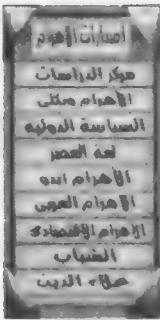 اصدارات الأهرام
مركز الدراسات
الأهرام ويكلى
السياسة الدولية
لغة العصر
الأهرام ابدو
الأهرام العربى
الأهرام الاقتصادى
الشباب
علاء الدين